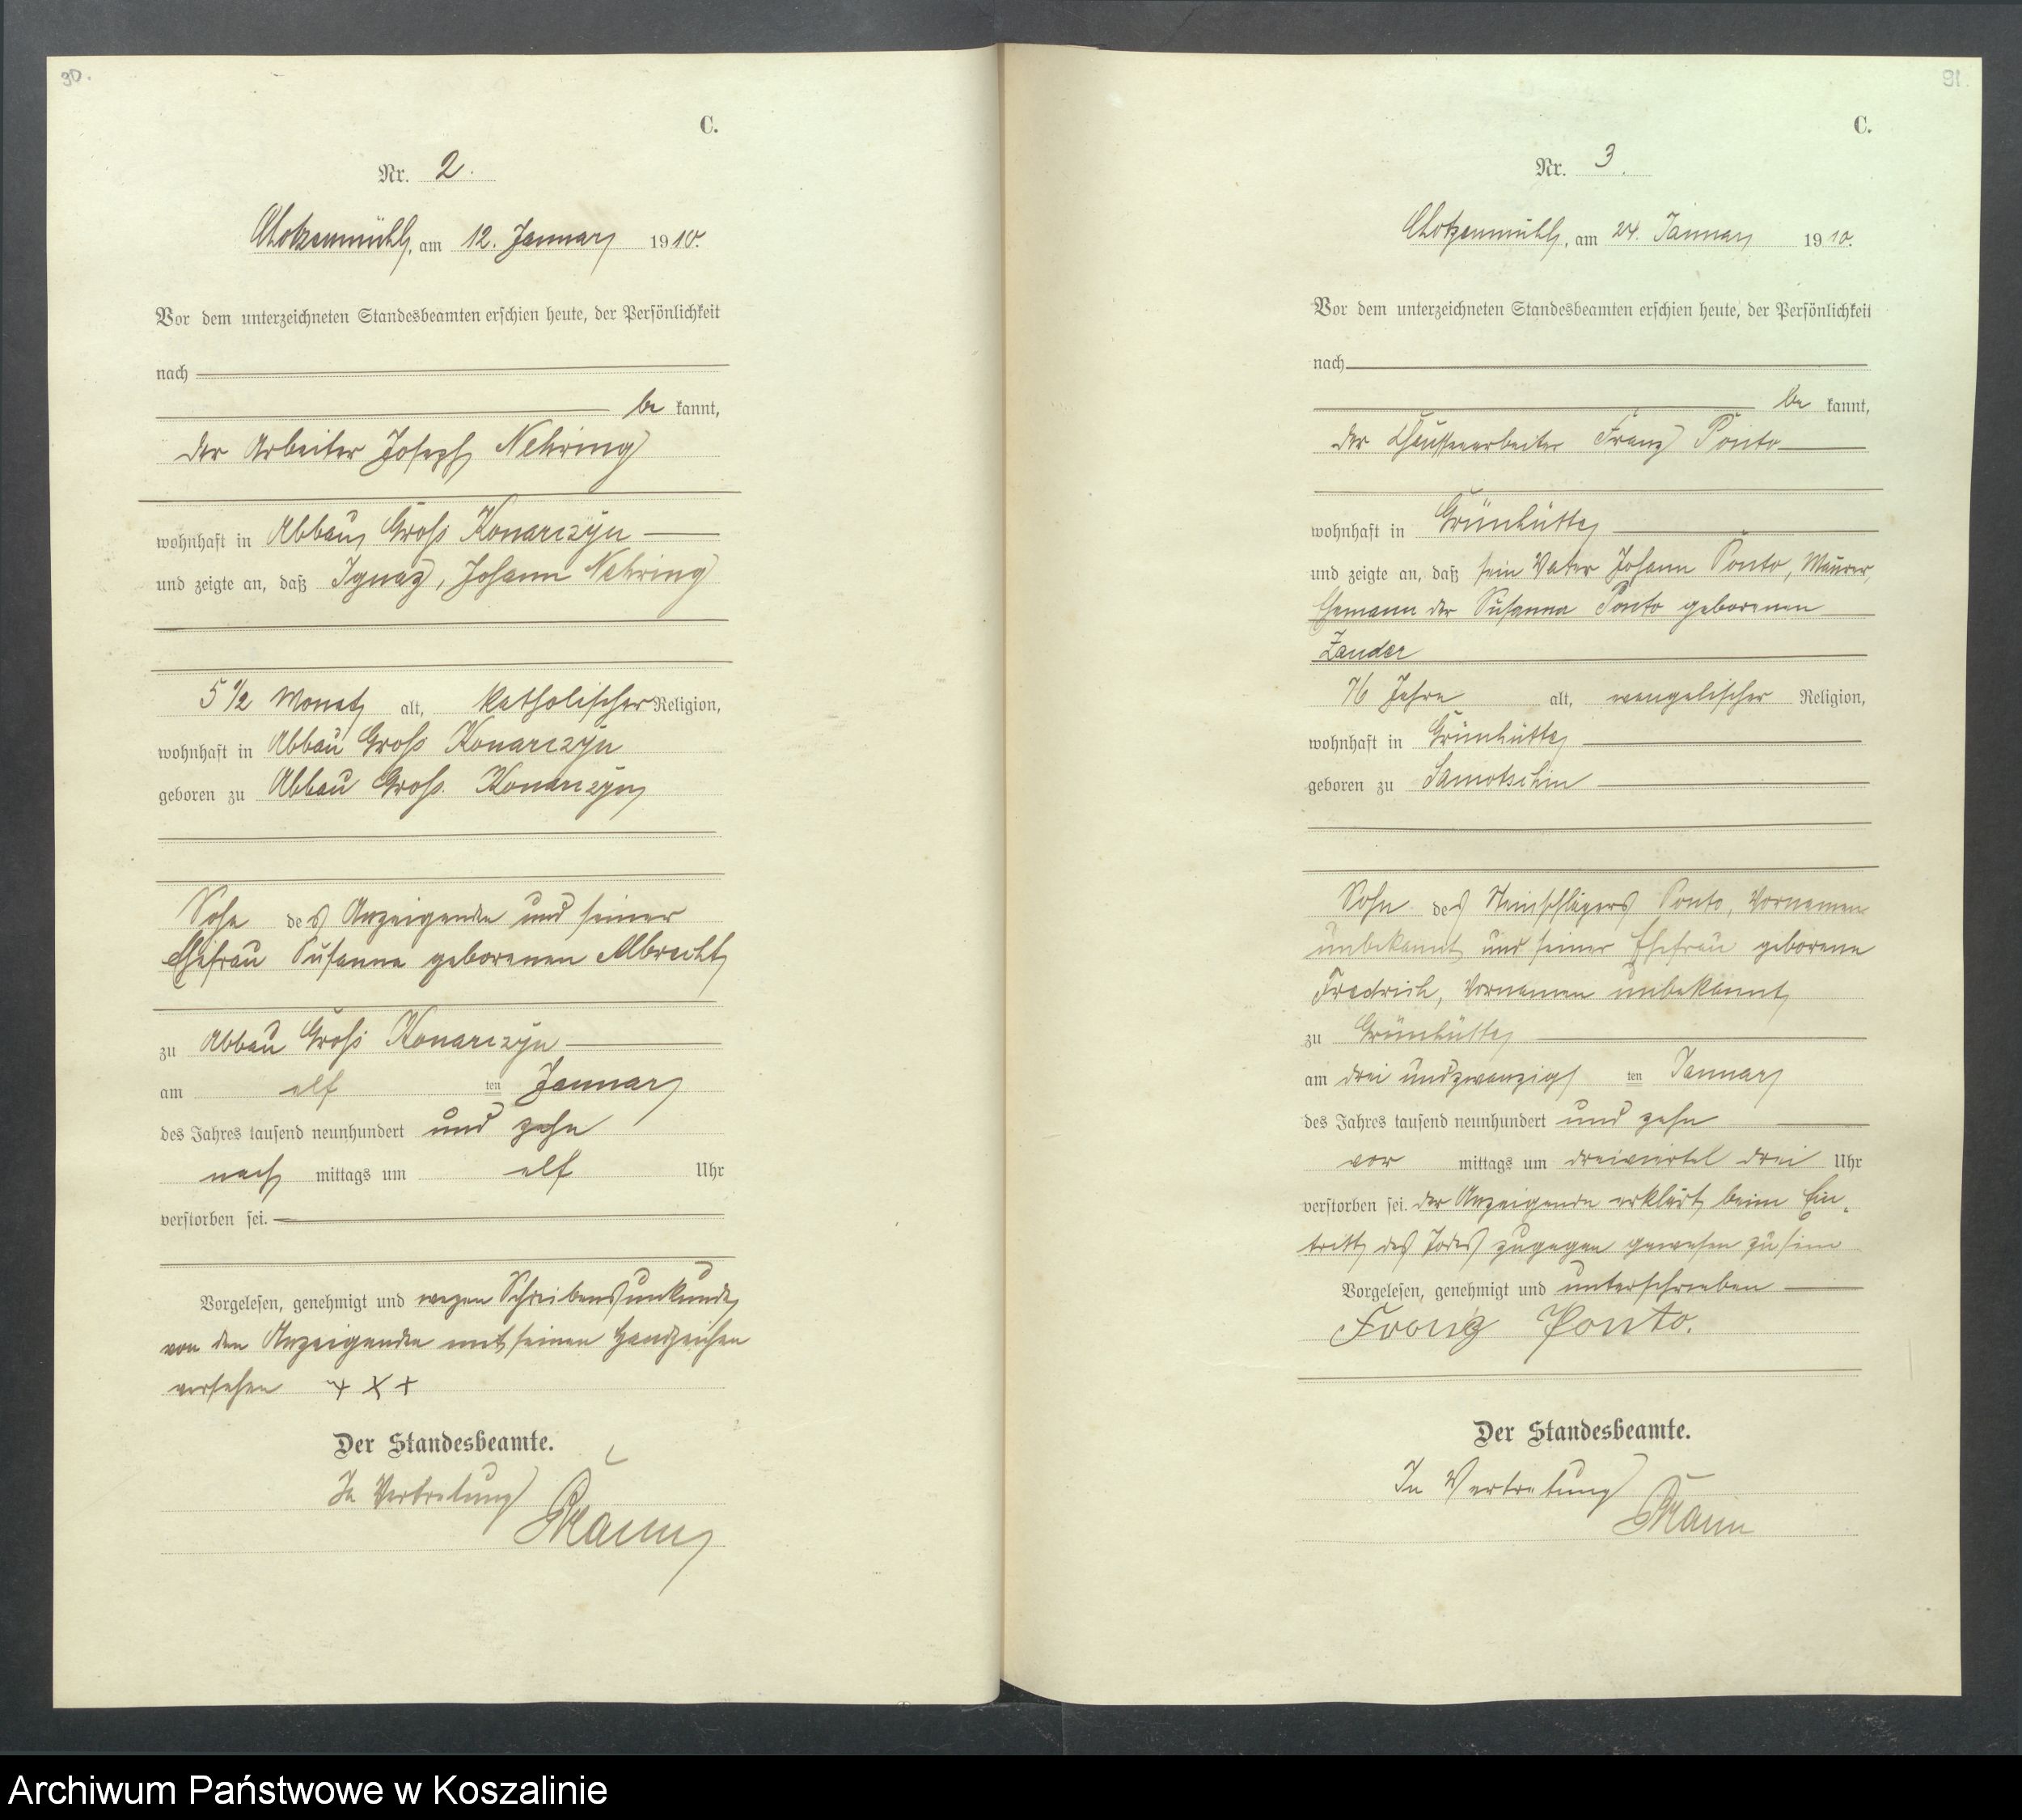 30.
C.
Nr. 2.
Chotzenmühl, am 12. Januar 1910.
Vor dem unterzeichneten Standesbeamten erschien heute, der Persönlichkeit
nach
be kannt,
der Arbeiter Joseph Nehring
wohnhaft in Abbau Groß Konarczyn
und zeigte an, daß Ignaz, Johann Nehring
5 1/2 Monat alt, katholischer Religion,
wohnhaft in Abbau Groß Konarczyn
geboren zu Abbau Groß Konarczyn
Sohn des Anzeigenden und seiner
Ehefrau Susanna geborenen Albrecht
zu Abbau Groß Konarczyn
am elf ten Januar
des Jahres tausend neunhundert und zehn
nach mittags um elf Uhr
verstorben sei.
Vorgelesen, genehmigt und wegen Schreibensunkunde
von dem Anzeigenden mit seinen Handzeichen
versehen + + +
Der Standesbeamte.
In Vertretung
91
C.
Nr. 3.
Chotzenmühl, am 24. Januar 1910.
Vor dem unterzeichneten Standesbeamten erschien heute, der Persönlichkeit
nach
be kannt,
der Chausseearbeiter Franz Ponto
wohnhaft in Grünhütte
und zeigte an, daß sein Vater Johann Ponto, Maurer,
Ehemann der Susanna Ponto geborenen
Zander
76 Jahre alt, evangelischer Religion,
wohnhaft in Grünhütte
geboren zu Samotschin
Sohn des Steinschlägers Ponto, Vornamen
unbekannt und seiner Ehefrau geborene
Fredrich, Vornamen unbekannt
zu Grünhütte
am drei und zwanzigs ten Januar
des Jahres tausend neunhundert und zehn
vor mittags um dreiviertel drei Uhr
verstorben sei. der Anzeigende erklärt beim Ein-
tritt des Todes zugegen gewesen zu sein
Vorgelesen, genehmigt und unterschrieben
Franz Ponto.
Der Standesbeamte.
In Vertretung
Archiwum Państwowe w Koszalinie